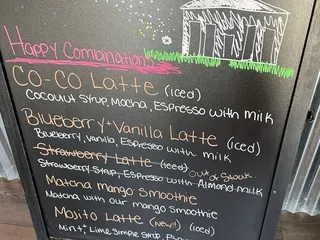 Happy Combinations
CO-CO Latte (iced)
Coconut Syrup, Mocha, Espresso with milk
Blueberry + Vanilla Latte (iced)
Blueberry, Vanilla, Espresso with milk
Strawberry Latte (iced) out of stock
Strawberry Syrup, Espresso with Almond milk
Matcha mango smoothie
Matcha with our mango smoothie
Mojito Latte (new!!) (iced)
Mint + Lime Simple Syrup,